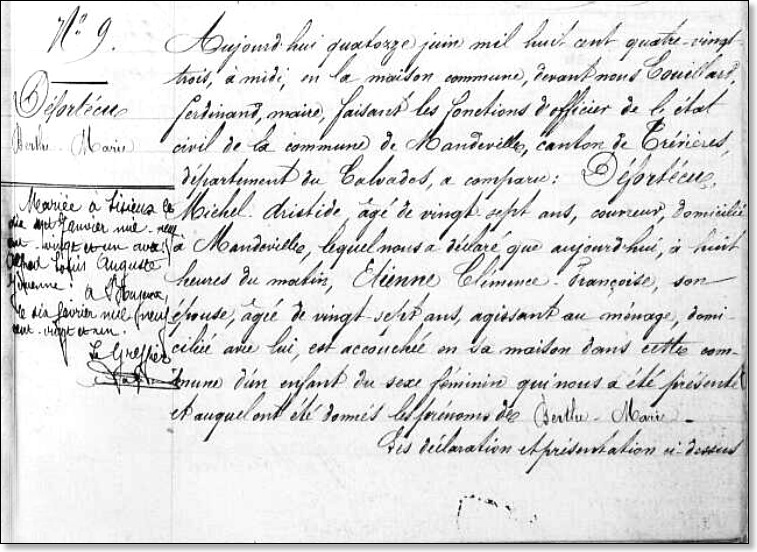 N° 9.
Défortécu
Berthe-Marie
Mariée à Lisieux le
dix sept Janvier mil neuf
cent-vingt et un avec
Alfred Louis Auguste
à
le dix février mil neuf
cent-vingt et un.
Le Greffier
Aujourd'hui quatorze juin mil huit cent quatre-vingt-
trois, à midi, en la maison commune, devant nous Couillard,
Ferdinand, maire, faisant les fonctions d'officier de l'état
civil de la commune de Mandeville, canton de Trévières,
département du Calvados, a comparu: Défortécu,
Michel-Aristide, âgé de vingt-sept ans, couvreur, domicilié
à Mandeville, lequel nous a déclaré que aujourd'hui, à huit
heures du matin, Etienne Clémence-Françoise, son
épouse, âgée de vingt-sept ans, agissant au ménage, domi-
ciliée avec lui, est accouchée en sa maison dans cette com-
mune d'un enfant du sexe féminin qui nous a été présenté
et auquel ont été donnés les prénoms de Berthe-Marie-
Les déclaration et présentation ci-dessus